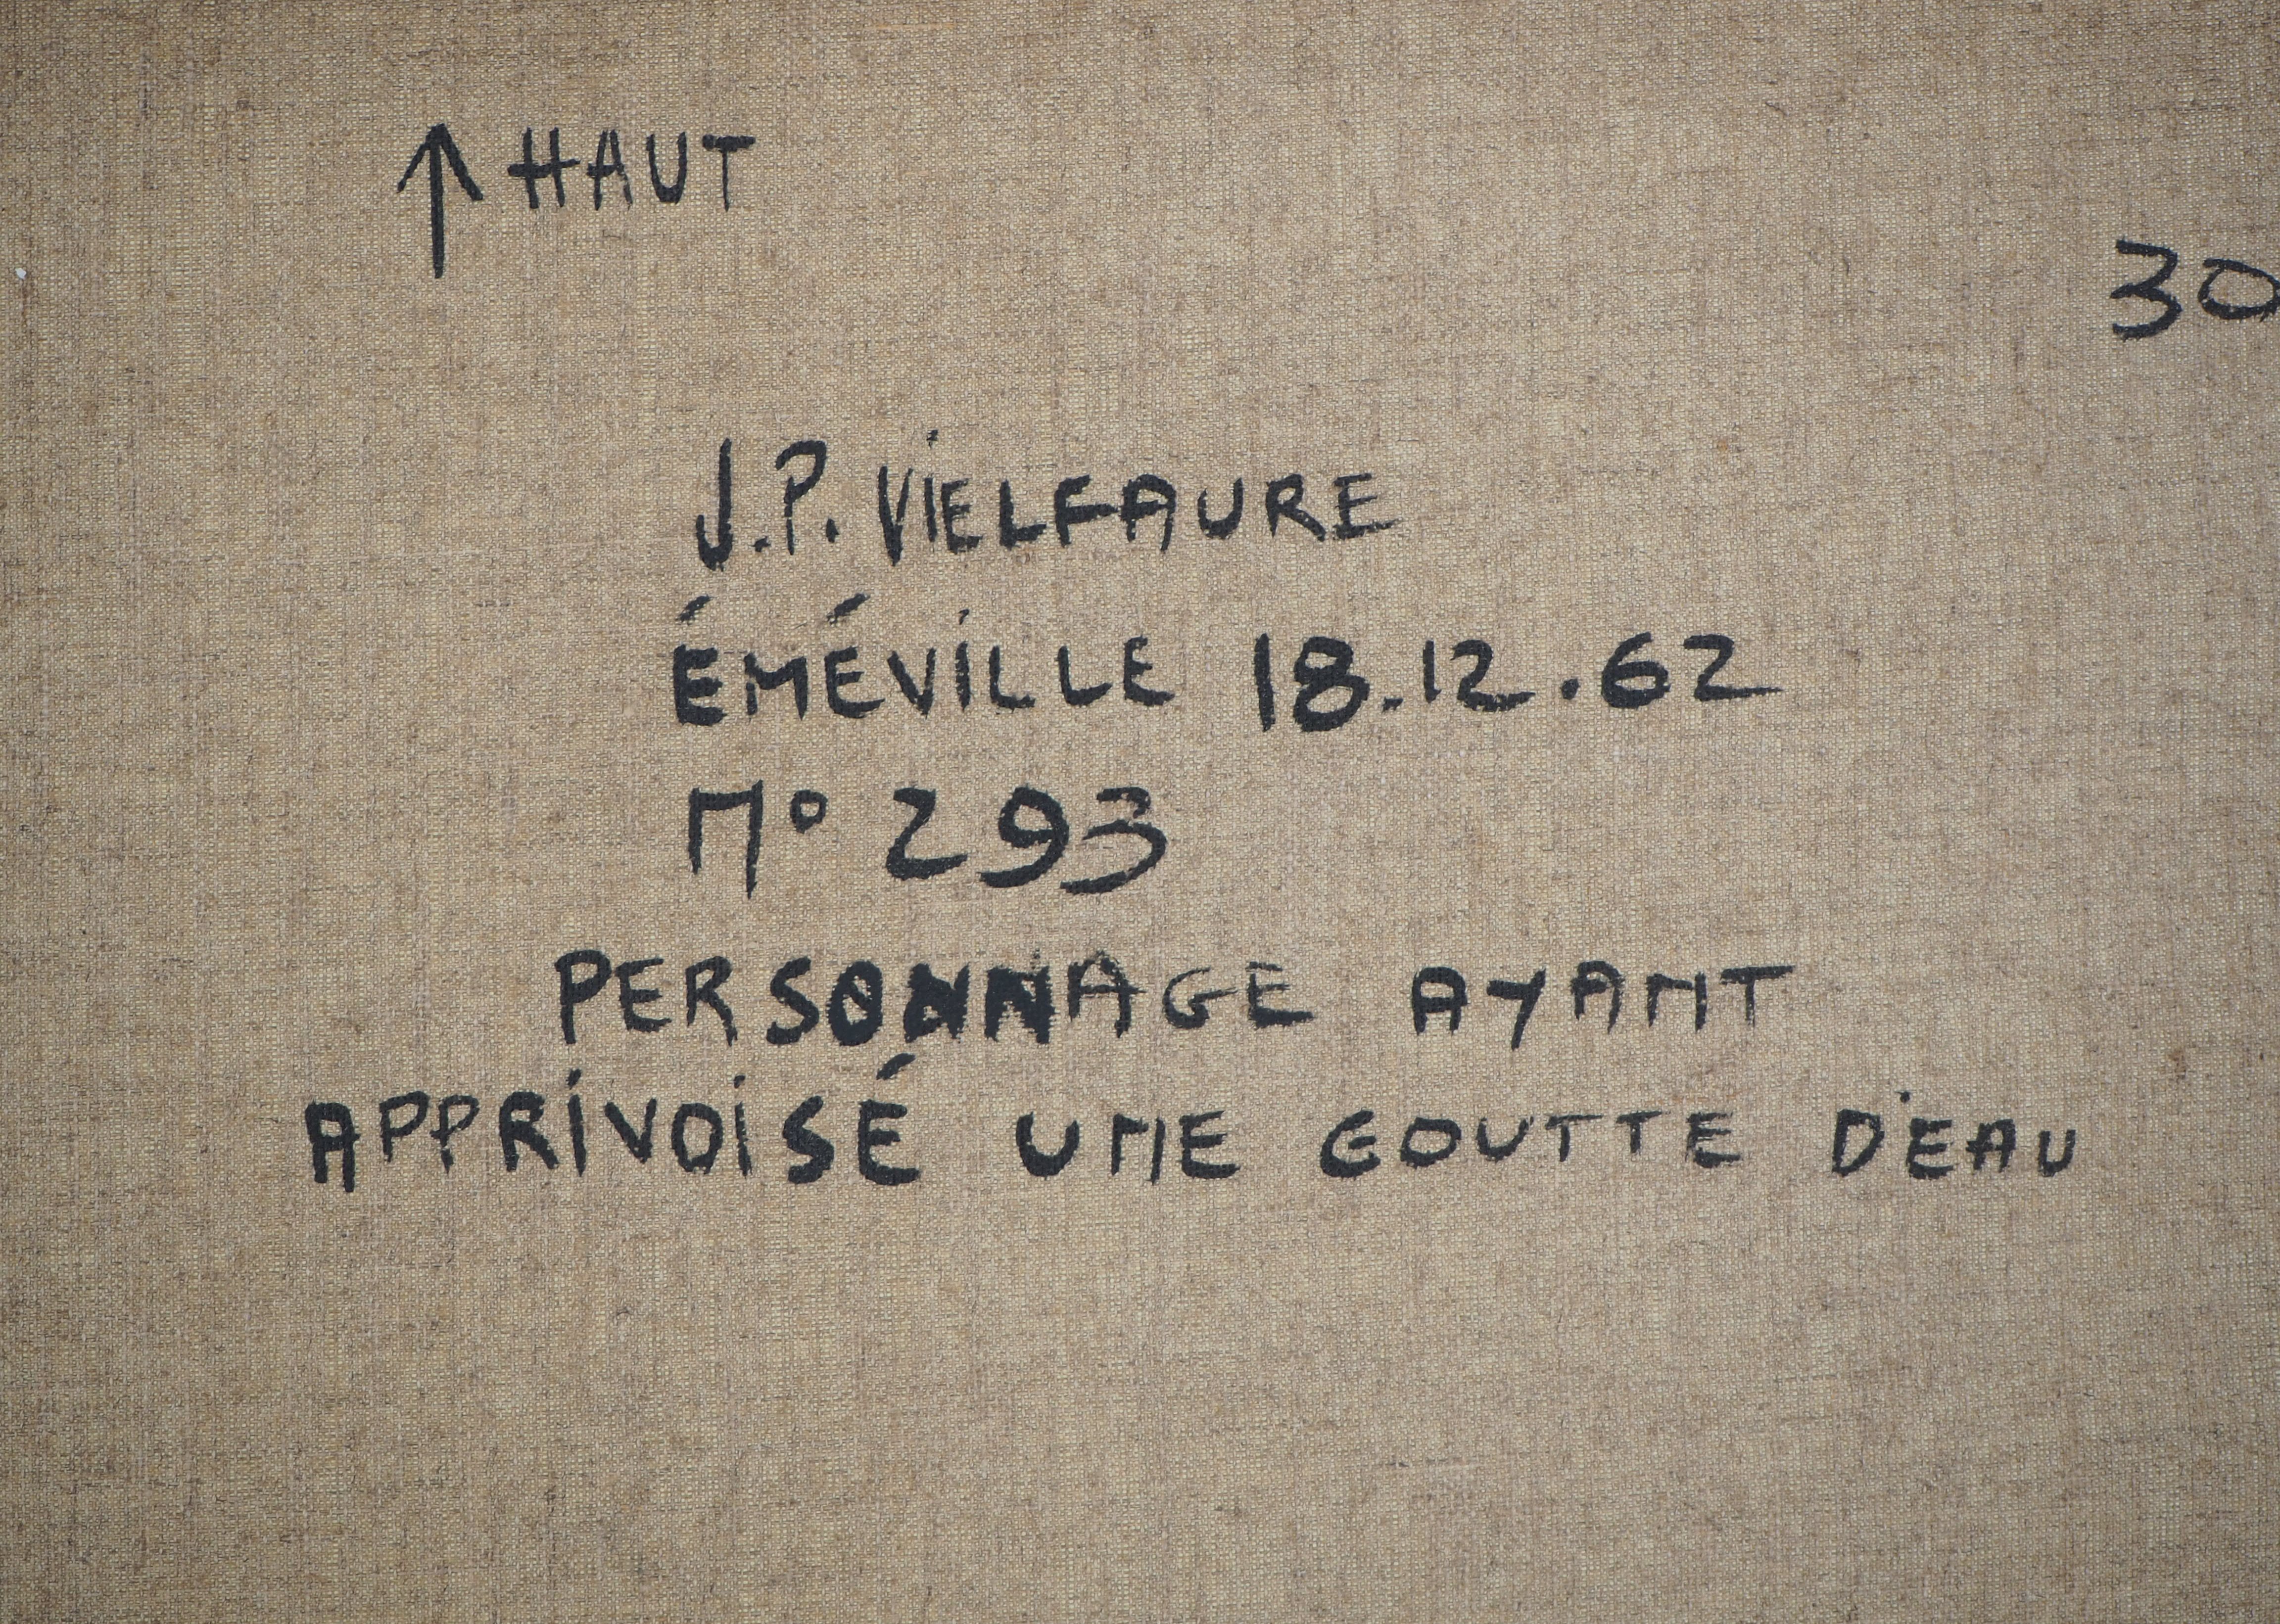 ↑ HAUT
30
J.P. VIELFAURE
ÉMÉVILLE 18.12.62
N° 293
PERSONNAGE AYANT
APPRIVOISÉ UNE GOUTTE D'EAU